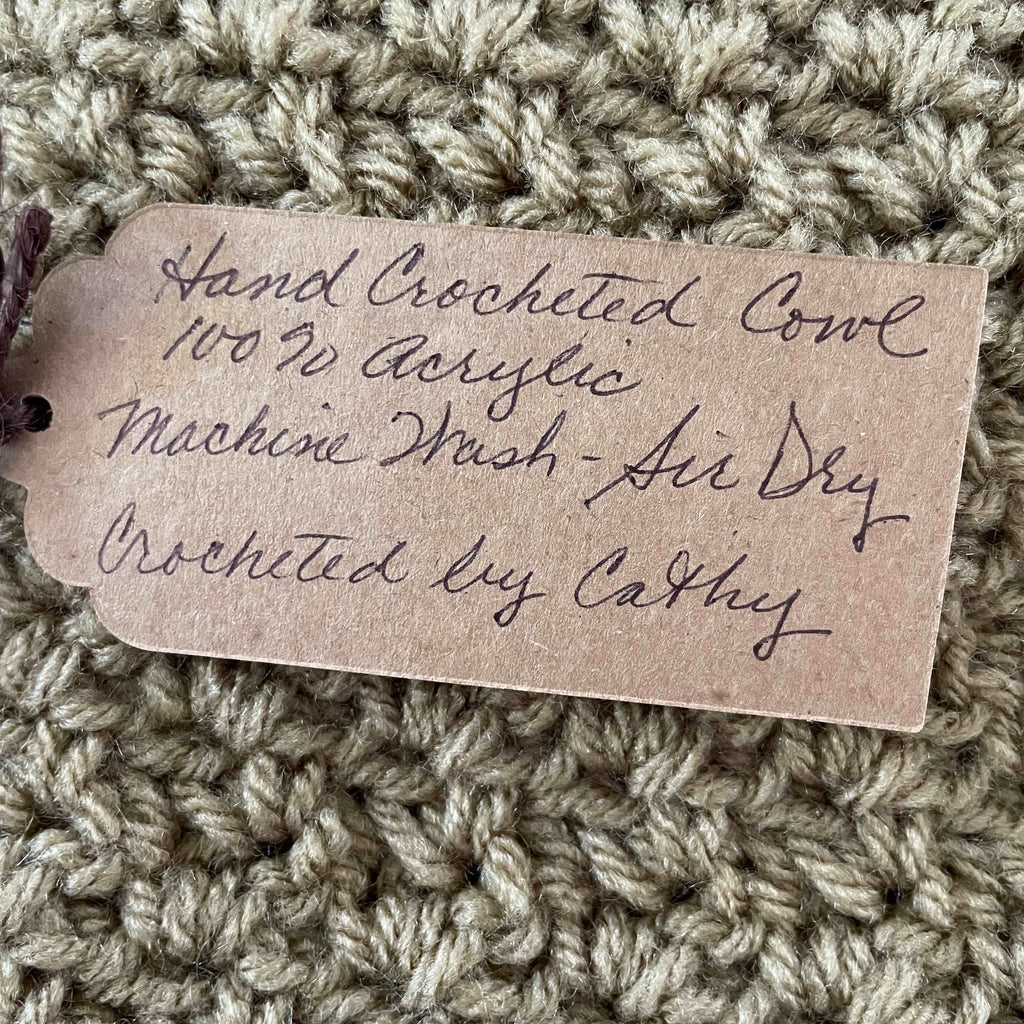 Hand Crocheted Cowl
100% Acrylic
Machine Wash - Air Dry
Crocheted by Cathy